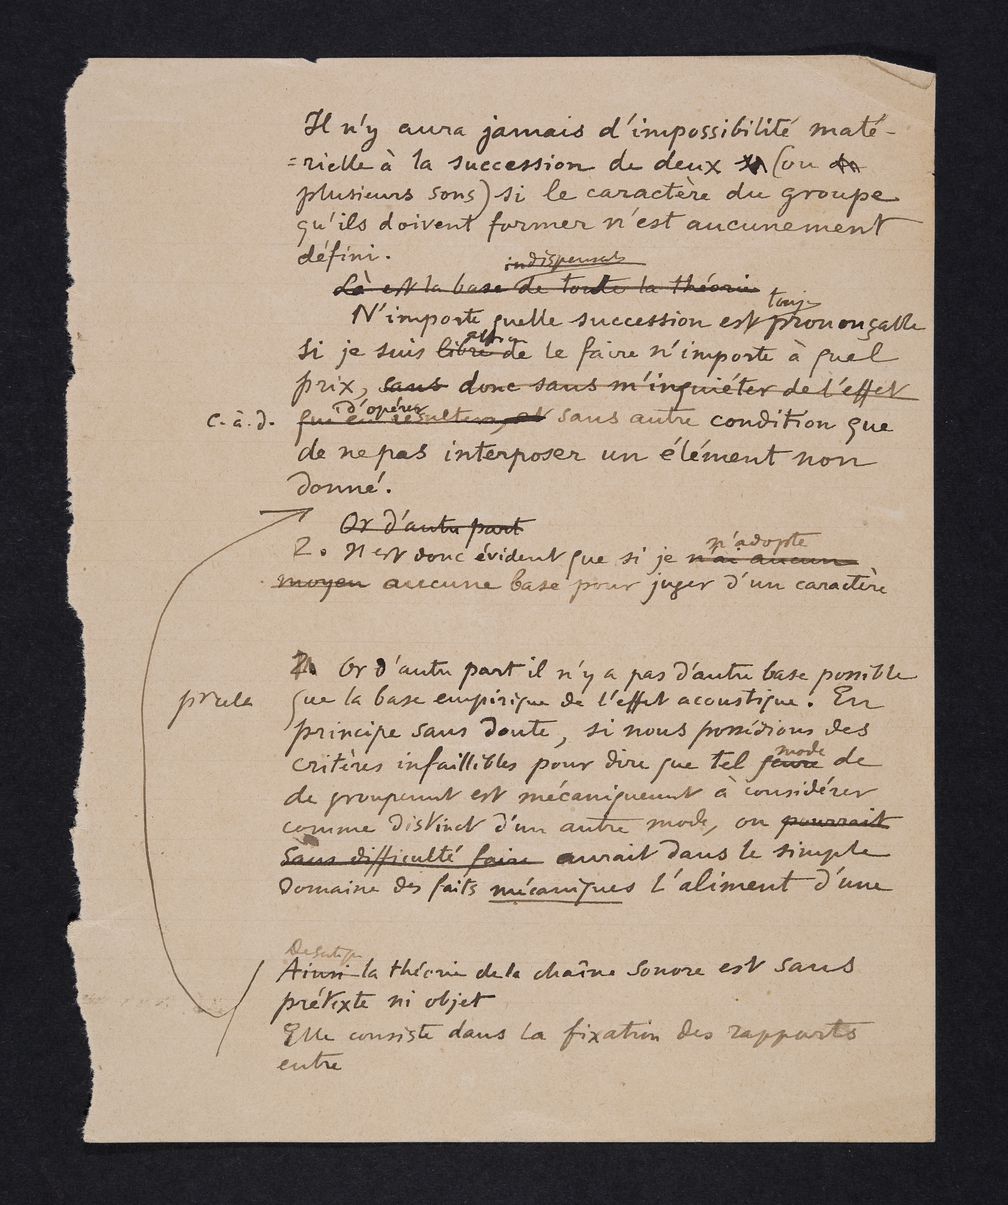 Il n'y aura jamais d'impossibilité maté-
=rielle à la succession de deux (ou
plusieurs sons) si le caractère du groupe
qu'ils doivent former n'est aucunement
défini.
indispensab
Là est la base de toute la théorie
touj
N'importe quelle succession est prononçable
si je suis libre de le faire n'importe à quel
prix, sans donc sans m'inquiéter de l'effet
d'opérer
c.-à.d. qui en résultera, et sans autre condition que
de ne pas interposer un élément non
donné.
Or d'autre part
2. Il est donc évident que si je n'ai aucun
n'adopte
moyen aucune base pour juger d'un caractère
2. Or d'autre part il n'y a pas d'autre base possible
que la base empirique de l'effet acoustique. En
principe sans doute, si nous possédions des
critères infaillibles pour dire que tel genre de
mode
de groupement est mécaniquement à considérer
comme distinct d'un autre mode, on pourrait
sans difficulté faire aurait dans le simple
domaine des faits mécaniques l'aliment d'une
Ainsi la théorie de la chaîne sonore est sans
prétexte ni objet
Elle consiste dans la fixation des rapports
entre